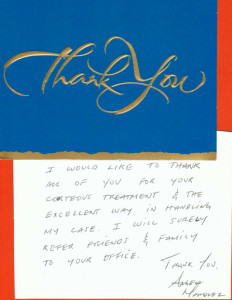 Thank You
I WOULD LIKE TO THANK
ALL OF YOU FOR YOUR
CORTEOUS TREATMENT & THE
EXCELLENT WAY IN HANDLING
MY CASE. I WILL SURELY
REFER FRIENDS & FAMILY
TO YOUR OFFICE.
THANK YOU,